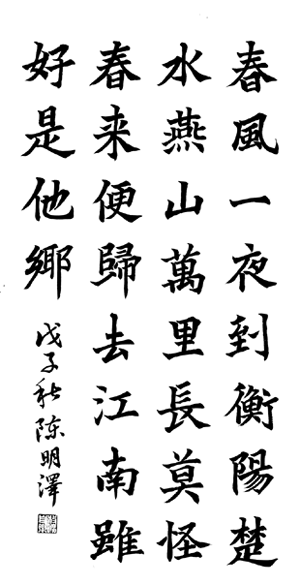 春風一夜到衡陽楚
水燕山萬里長莫怪
春来便歸去江南雖
好是他鄉
戊子秋陈明澤